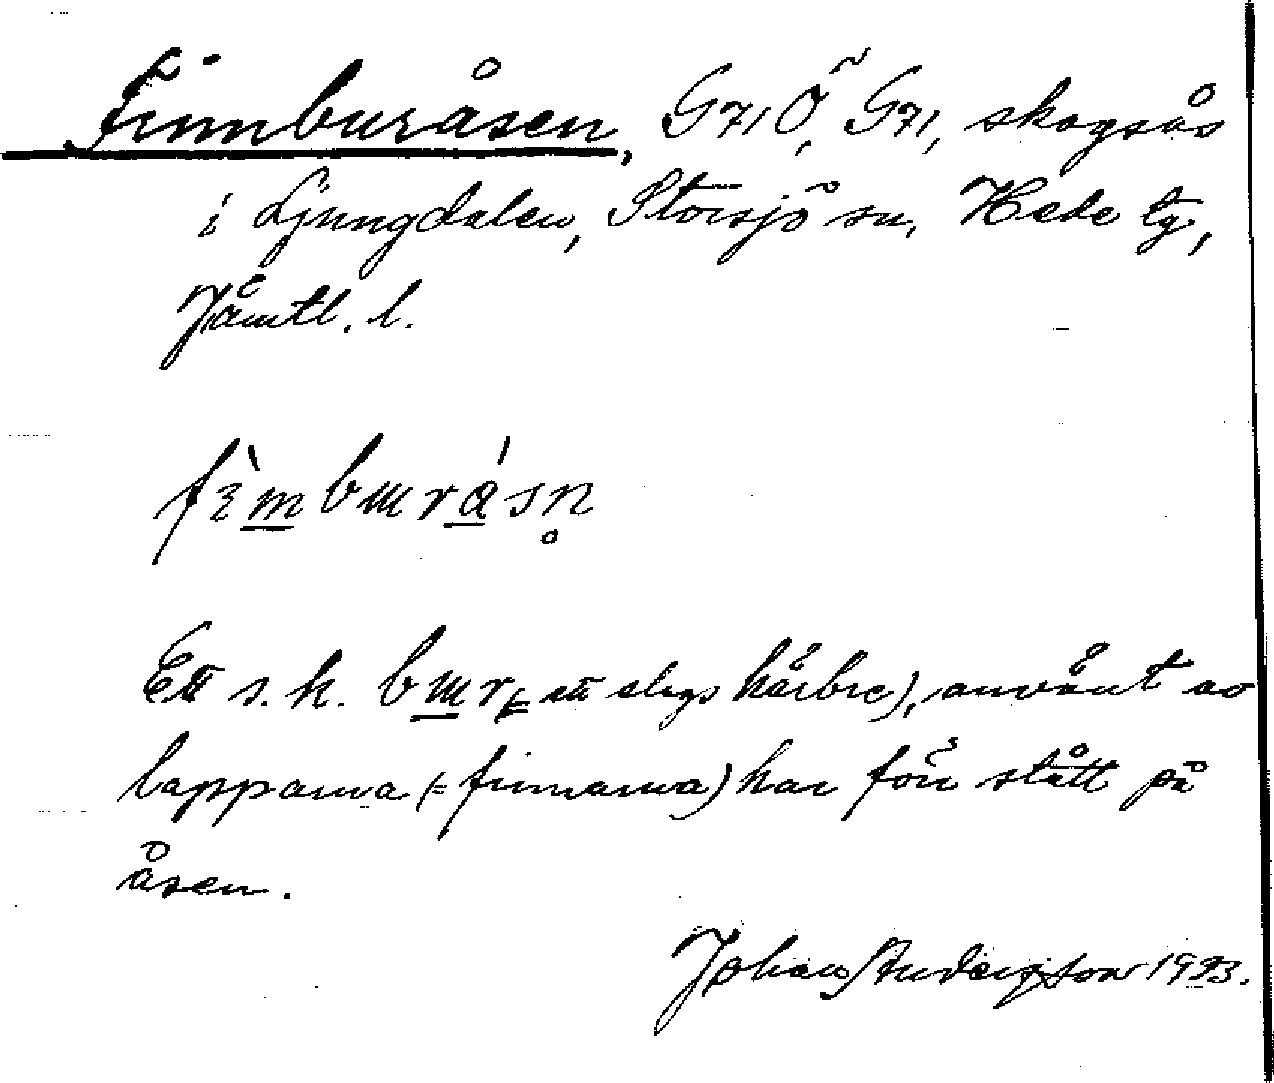 Finnburåsen, G71Ö, G71, skogsås
i Ljungdalen, Storsjö sn, Hede tg,
Jämtl. l.
fìmbɯråsn̥
Ett s.k. bɯr (= ett slags härbre), använt av
lapparna (= finnarna) har förr stått på
åsen.
Johan Andersson 1923.